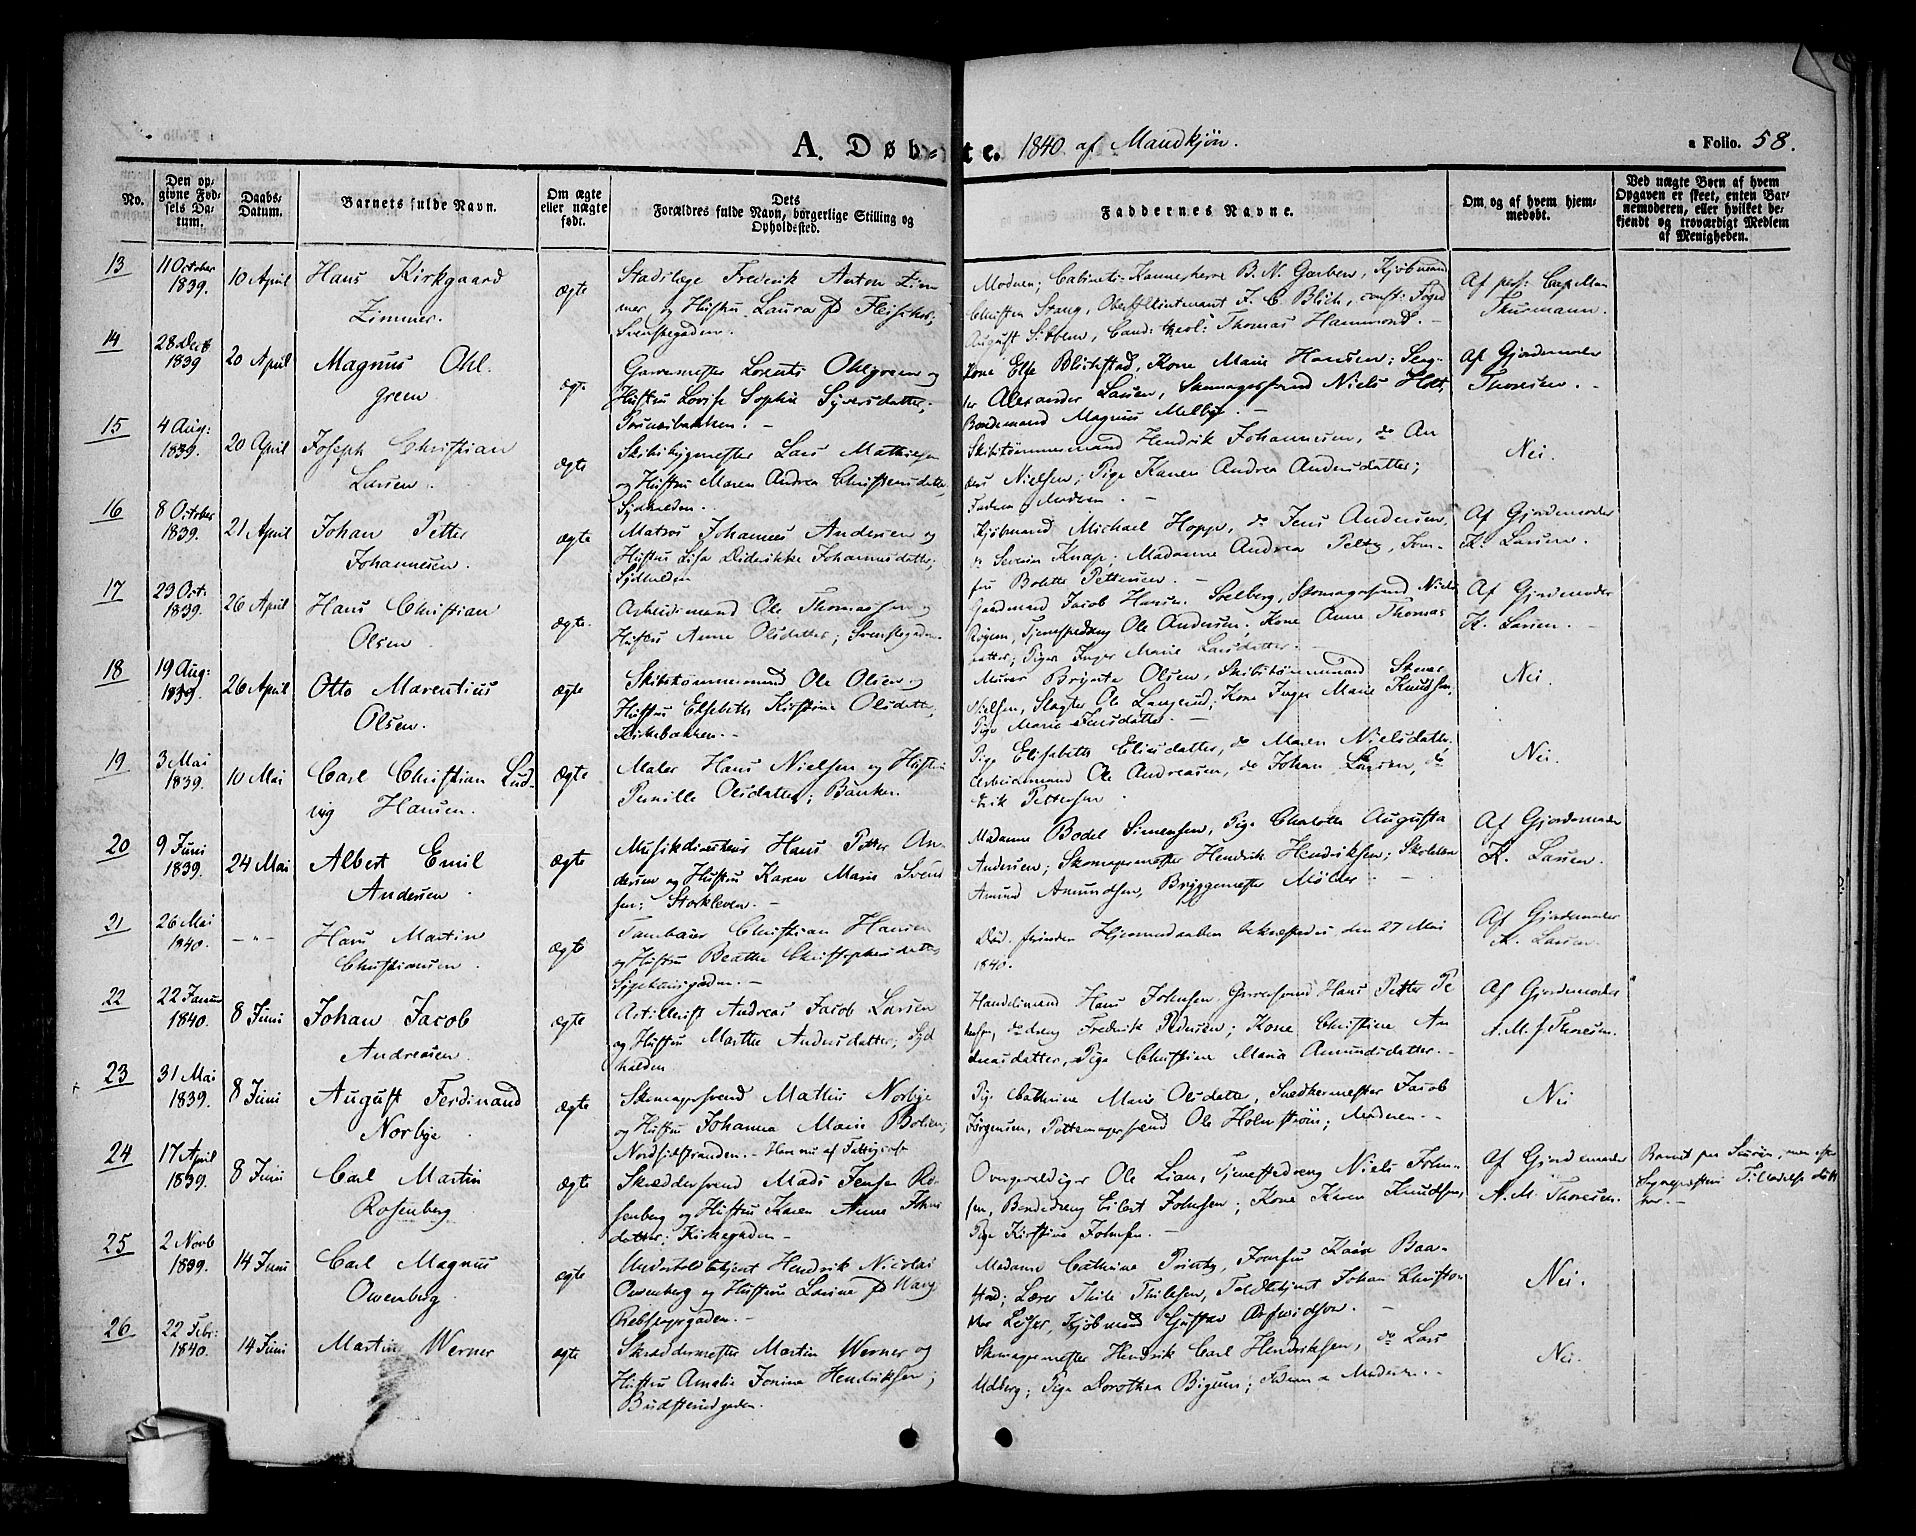 A. Døb-te. 1840. af Mandkjøn.
a Folio. 58.
No.
Den opgivne Fødsels Datum.
Daabs-Datum.
Barnets fulde Navn.
Om ægte eller uægte født.
Dets Forældres fulde Navn, borgerlige Stilling og Opholdssted.
Faddernes Navne.
Om og af hvem hjemmedøbt.
Ved uægte Børn af hvem Opgaven er skeet, enten Barnemoderen, eller hvilket bekjendt og troværdigt Medlem af Menigheden.
13
11 October 1839. 10 April Hans Kirkgaard
Zimmer. ægte
Frederik Anton Zim
mer og Hustru Laura fd
Moderen; Cabinets-Kammerherre B. N. Garben, Kjøbmand
Christen Stang, Oberstlieutenant J. C. Blich, const: Foged
August Sibbern, Cand: theol: Thomas Hammond. -
Af
Thurmann.
14
28 Decb 1839 20 April Magnus Ohl
green ægte
Garvemester Lorents Ohlgreen og
Hustru Lovise Sophie Syversdatter;
Kone Else Blichstad, Kone Marie Hansen;
Alexander Larsen, Skomagersvend Niels
Bondemand Magnus Melbye. -
Af Gjordemoder
Thoresen. -
15
4 Aug: 1839. 20 April Joseph Christian
Larsen. ægte
Skibsbygmester Lars Mathisen
og Hustru Maren Andrea Christensdatter,
Sydhelden.
Skibstømmermand Hendrik Johannesen, do An
ders Nielsen; Pige Karen Andrea Andersdatter;
Faderen, Moderen. -
Nei.
16
8 October 1839. 21 April Johan Petter
Johannesen. ægte
Matros Johannes Andersen og
Hustru Lisa Diderikke Johannesdatter;
Sydhelden
Kjøbmand Michael Hoppe, do Jens Andersen,
do Severin Knap; Madamme Andrea Peltz, Jom-
fru Bolette Pettersen. -
Af Gjordemoder
K. Larsen.
17
23 Oct. 1839. 26 April Hans Christian
Olsen ægte.
Arbeidsmand Ole Thomassen og
Hustru Anne Olsdatter; Svenskegaden.
Gaardmand Jacob Hansen Solberg, Skomagersvend Niels
Tjenestedreng Ole Andersen; Kone Anne Thomas
datter; Pige Inger Marie Larsdatter. -
Af Gjordemoder
K. Larsen. -
18
19 Aug: 1839. 26 April Otto Marentius
Olsen. ægte
Skibstømmermand Ole Olsen og
Hustru Elsebeth Kirstine Olsdatter,
Kirkebakken. -
Murer Brynte Olsen, Skibstømmermand Stener
Nielsen, Slagter Ole Langerud; Kone Inger Marie Knudsen,
Pige Marie Jensdatter. -
Nei.
19
3 Mai 1839. 10 Mai Carl Christian Lud-
vig Hansen. ægte
Maler Hans Nielsen og Hustru
Pernille Olsdatter; Banken.
Pige Elisabeth Eliasdatter, do Maren Nielsdatter
Arbeidsmand Ole Andreasen, do Johan Larsen, do
Erik Pettersen.
Nei.
20
9 Juni 1839. 24 Mai Albert Emil
Andersen. ægte
Musikdirecteur Hans Petter An-
dersen og Hustru Karen Marie Svend
sen; Storkleven. -
Madame Bodel Simensen, Pige Charlotte Augusta
Andersen; Skomagermester Hendrik Hendriksen;
Amund Amundsen, Bryggemester Møller. -
Af Gjordemoder
K. Larsen.
21
26 Mai 1840. - " - Hans Martin
Christiansen. ægte
Tambour Christian Hansen
og Hustru Beathe Christophersdatter
Sygehuusgaden. -
Død, forinden Hjemmedaaben bekræftedes den 27 Mai
1840.
Af Gjordemoder
K. Larsen.
22
22 Januar 1840. 8 Juni Johan Jacob
Andreasen. ægte
Artillerist Andreas Jacob Larsen
og Hustru Marthe Andersdatter; Syd
halden
Handelsmand Hans Johnsen, Garversvend Hans Petter Pe
tersen, do dreng Fredrik Pedersen; Kone Christine An
dreasdatter, Pige Christine Maria Amundsdatter. -
Af Gjordemoder
A. M. J. Thoresen.
23
31 Mai 1839. 8 Juni August Ferdinand
Norbye. ægte
Skomagersvend Mathis Norbye
og Hustru Johanna Marie Bolsen;
Nordsidstranden. - Han nu af Fattigvæs.
Pige Cathrine Marie Olsdatter, Snedkermester Jacob
Jørgensen, Pottemagersvend Ole Holmstrøm; Moderen. -
Nei
24
17 April 1839. 8 Juni Carl Martin
Rosenberg. ægte
Skræddersvend Mads Jensen Ro-
senberg og Hustru Karen Anne Johns
datter; Kirkegaden. -
Overgeraldiger Ole Lian, Tjenestedreng Niels John-
sen, Bondedreng Eilert Johnsen; Kone Karen Knudsen,
Pige Kirstine Johnsen. -
Af Gjordemoder
A. M. Thoresen.
Tilladelse døbt
her. -
25
2 Novb 1839. 14 Juni Carl Magnus
Owenberg. ægte
Hendrik Nicolai
Owenberg og Hustru Lovine fd Wang
Rebslagergaden. -
Madame Cathrine Printz, Jomfru Kaia Baa-
stad; Lærer Thile Thilesen, Toldbetjent Johan Christo-
pher Leyser, Kjøbmand Gustav Arfwidson. -
Nei.
26
22 Febr: 1840. 14 Juni Martin Werner
ægte
Skræddermester Martin Werner og
Hustru Amalie Jonine Hendriksen;
Budstensgaden.
Skomagermester Hendrik Carl Hendriksen, do Lars
Udberg; Pige Dorothea Bigum; Faderen & Moderen. -
Nei.